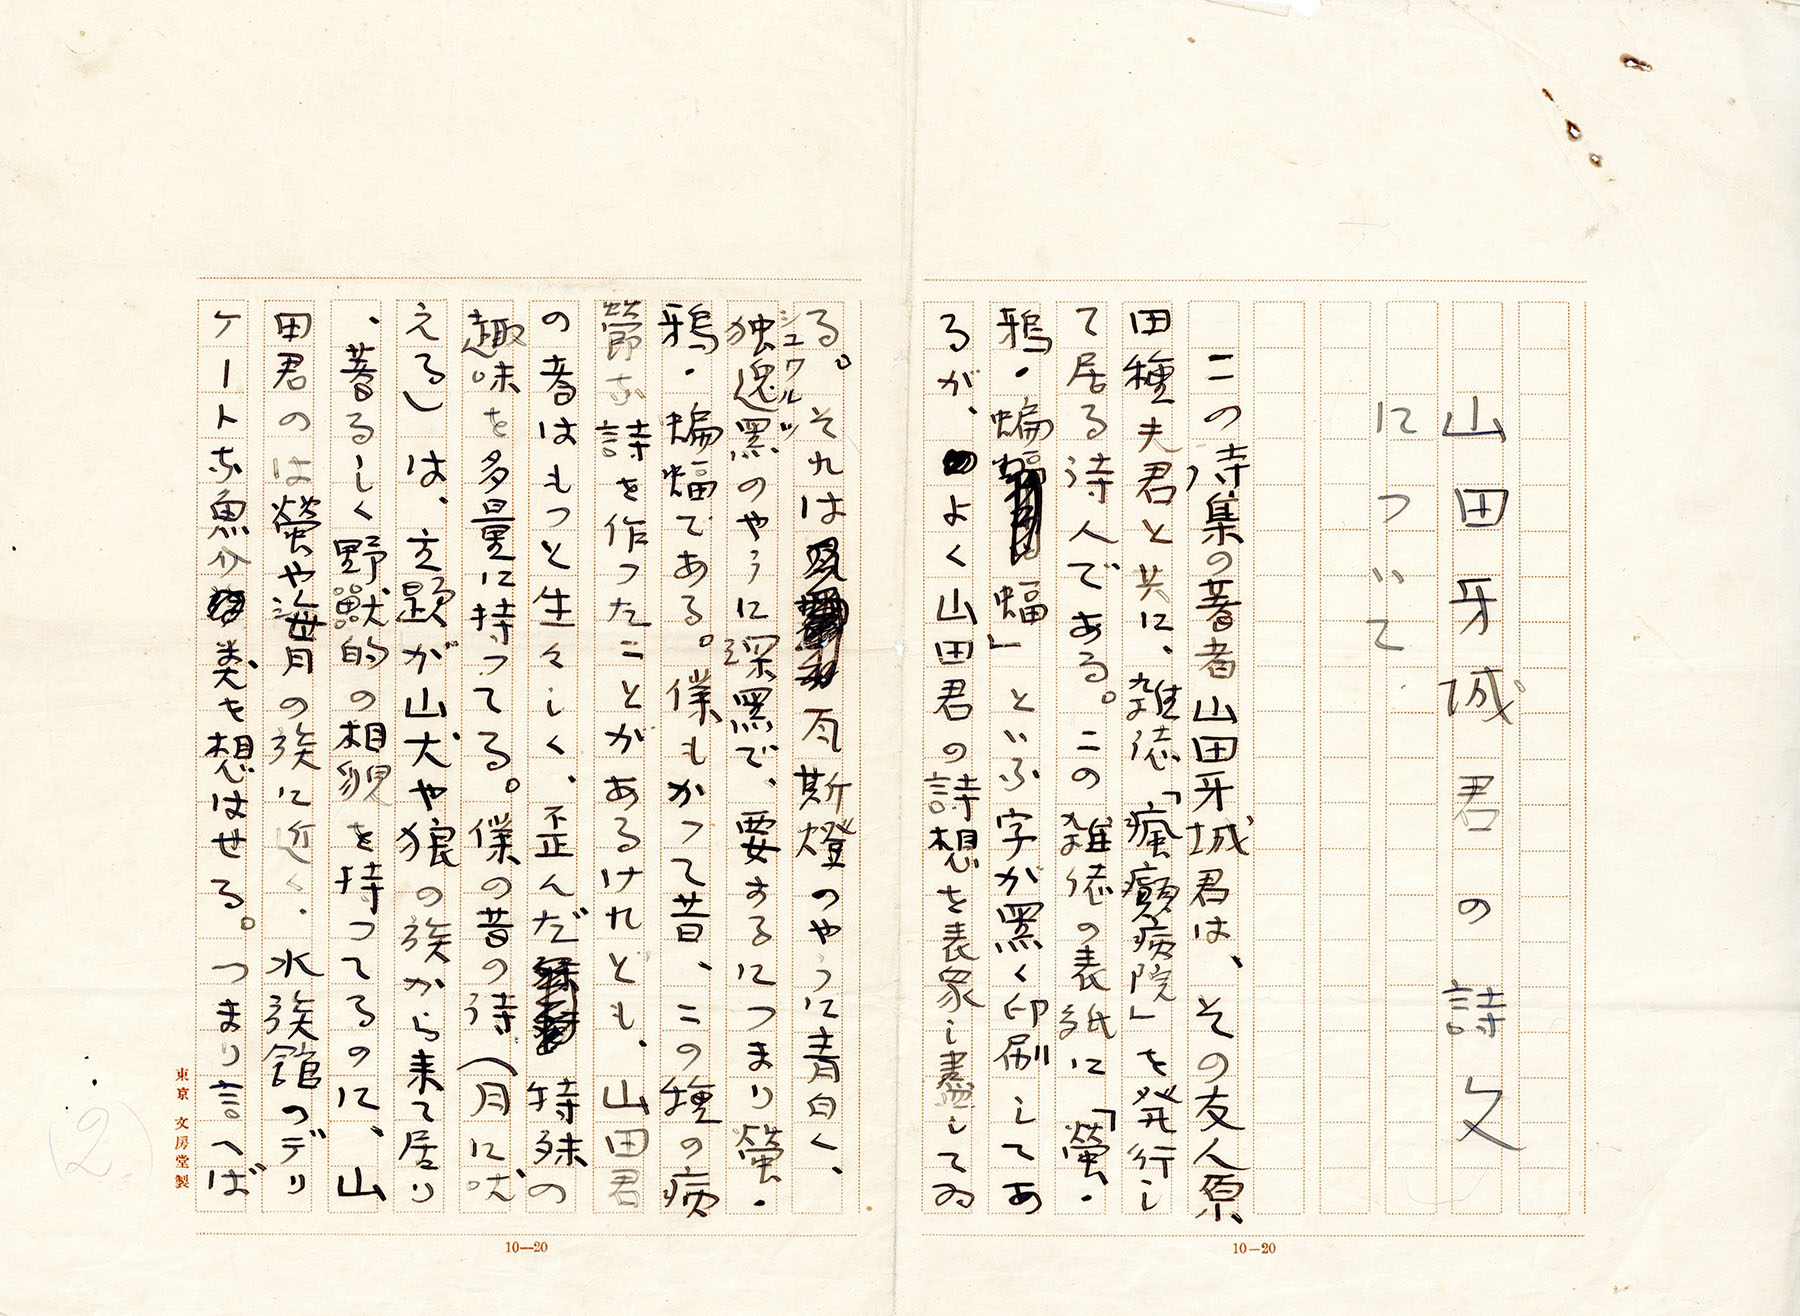 山田牙城君の詩文
について
この詩集の著者山田牙城君は、その友人原
田種夫君と共に、雑誌「瘋癲病院」を発行し
て居る詩人である。この雑誌の表紙に「螢・
鴉・蝙蝠」といふ字が黒く印刷してあ
るが、よく山田君の詩想を表象し盡してゐ
る。それは瓦斯燈のやうに青白く、
シュワルツ
独逸黒のやうに深黒で、要するにつまり螢・
鴉・蝙蝠である。僕もかつて昔、この種の病
的な詩を作つたことがあるけれども、山田君
の者はもつと生々しく、歪んだ特殊の
趣味を多量に持つてる。僕の昔の詩(月に吠
える)は、主題が山犬や狼の族から来て居り
、著るしく野獣的の相貌を持つてるのに、山
田君のは螢や海月の族に近く、水族館のデリ
ケートな魚介類を想はせる。つまり言へば
10—20
10—20
東京 文房堂製
2.